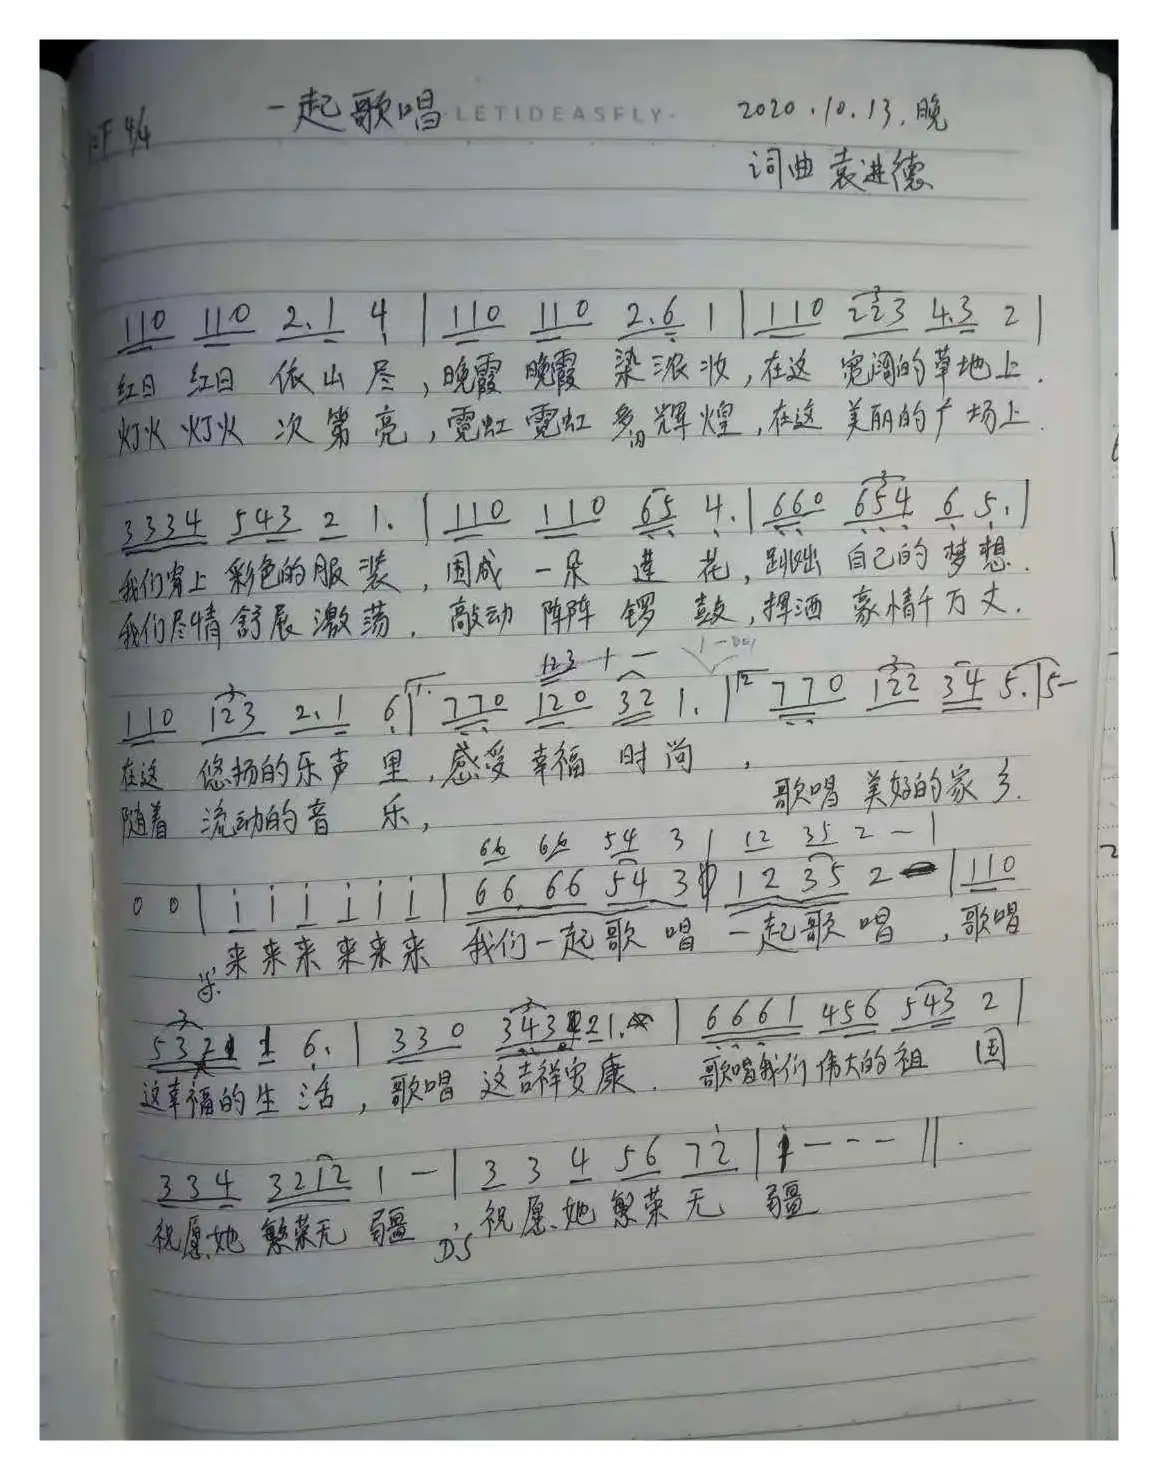 一起歌唱 ·LETIDEASFLY· 2020.10.13.晚
1=F 4/4
词曲 袁进德
110 110 2.1 4 | 110 110 2.6 1 | 110 223 4.3 2 |
红日 红日 依山尽,晚霞 晚霞 染浓妆,在这 宽阔的草地上.
灯火 灯火 次第亮,霓虹 霓虹 多辉煌,在这 美丽的广场上.
3334 543 2 1. | 110 110 65 4. | 660 654 6 5. |
我们穿上 彩色的服装,围成 一朵 莲花,跳出 自己的梦想.
我们尽情舒展激荡.敲动 阵阵 锣鼓,挥洒 豪情千万丈.
123 1 —
110 123 2.1 6 | 1. 770 120 32 1. | 2 770 122 34 5. | 5—
在这 悠扬的乐声里,感受 幸福 时尚,
歌唱 美好的家乡.
随着 流动的音乐,
66 66 54 3 | 12 35 2 — |
0 0 | i i i i i i | 66 66 54 3 | 12 35 2 | 110
来来来来来来 我们一起歌唱 一起歌唱,歌唱
532 1 6. | 330 343 21. | 6661 456 543 2 |
这幸福的生活,歌唱 这吉祥安康.歌唱我们伟大的祖国
334 3212 1 — | 3 3 4 56 72 | i — — — ‖.
祝愿她 繁荣无疆,祝愿她繁荣无疆
DS